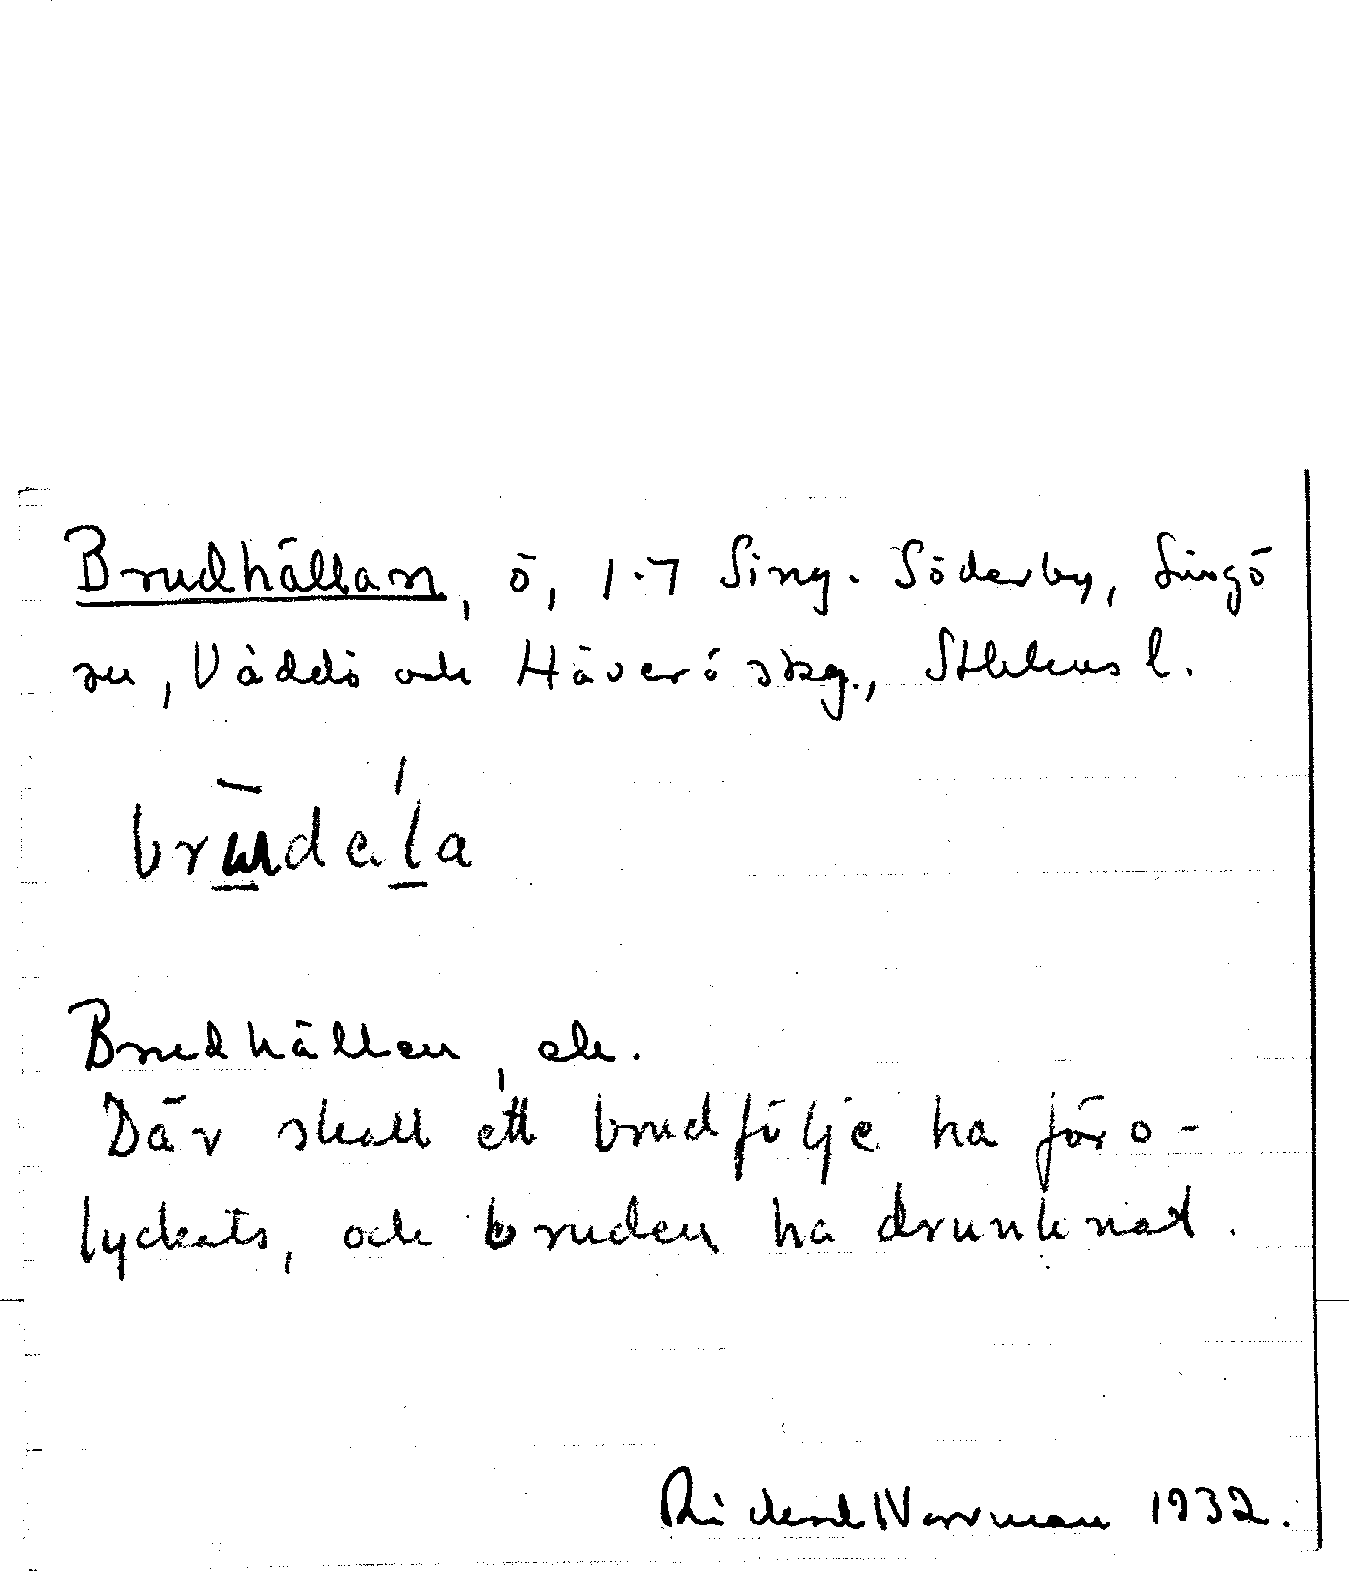 Brudhällan, ö, 1.7 Sing. Söderby, Singö
sn, Väddö och Häverö skg., Sthlms l.
brūdeĺa
Brudhällen, ek.
Där skall ett brudfölje ha föro-
lyckats, och bruden ha drunknat.
Rickard Norrman 1932.